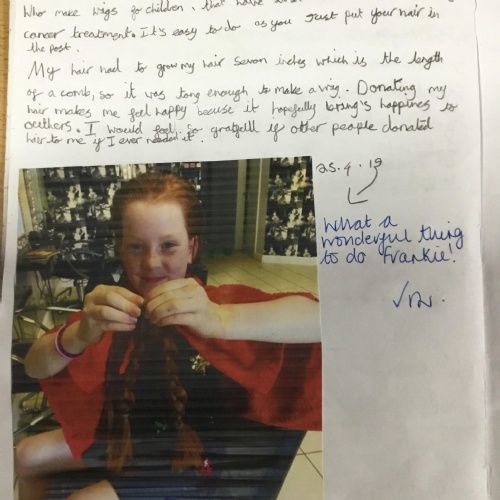 Who make wigs for children, that have
cancer treatment. It's easy to do as you Just put your hair in
the post.
My hair had to grow my hair sevon inches which is the length
of a comb, so it was long enough to make a wig. Donating my
hair makes me feel happy becuse it hopefully bring's happines to
outhers. I would feel so gratfell if other people donated
hair to me if I ever needed it.
25.4.19
What a
wonderful thing
to do Frankie!